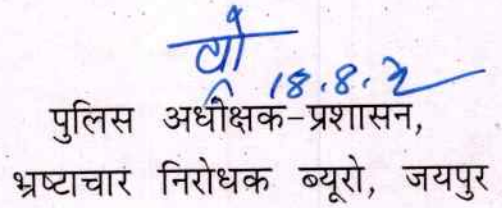 18.8.2
पुलिस अधीक्षक-प्रशासन,
भ्रष्टाचार निरोधक ब्यूरो, जयपुर